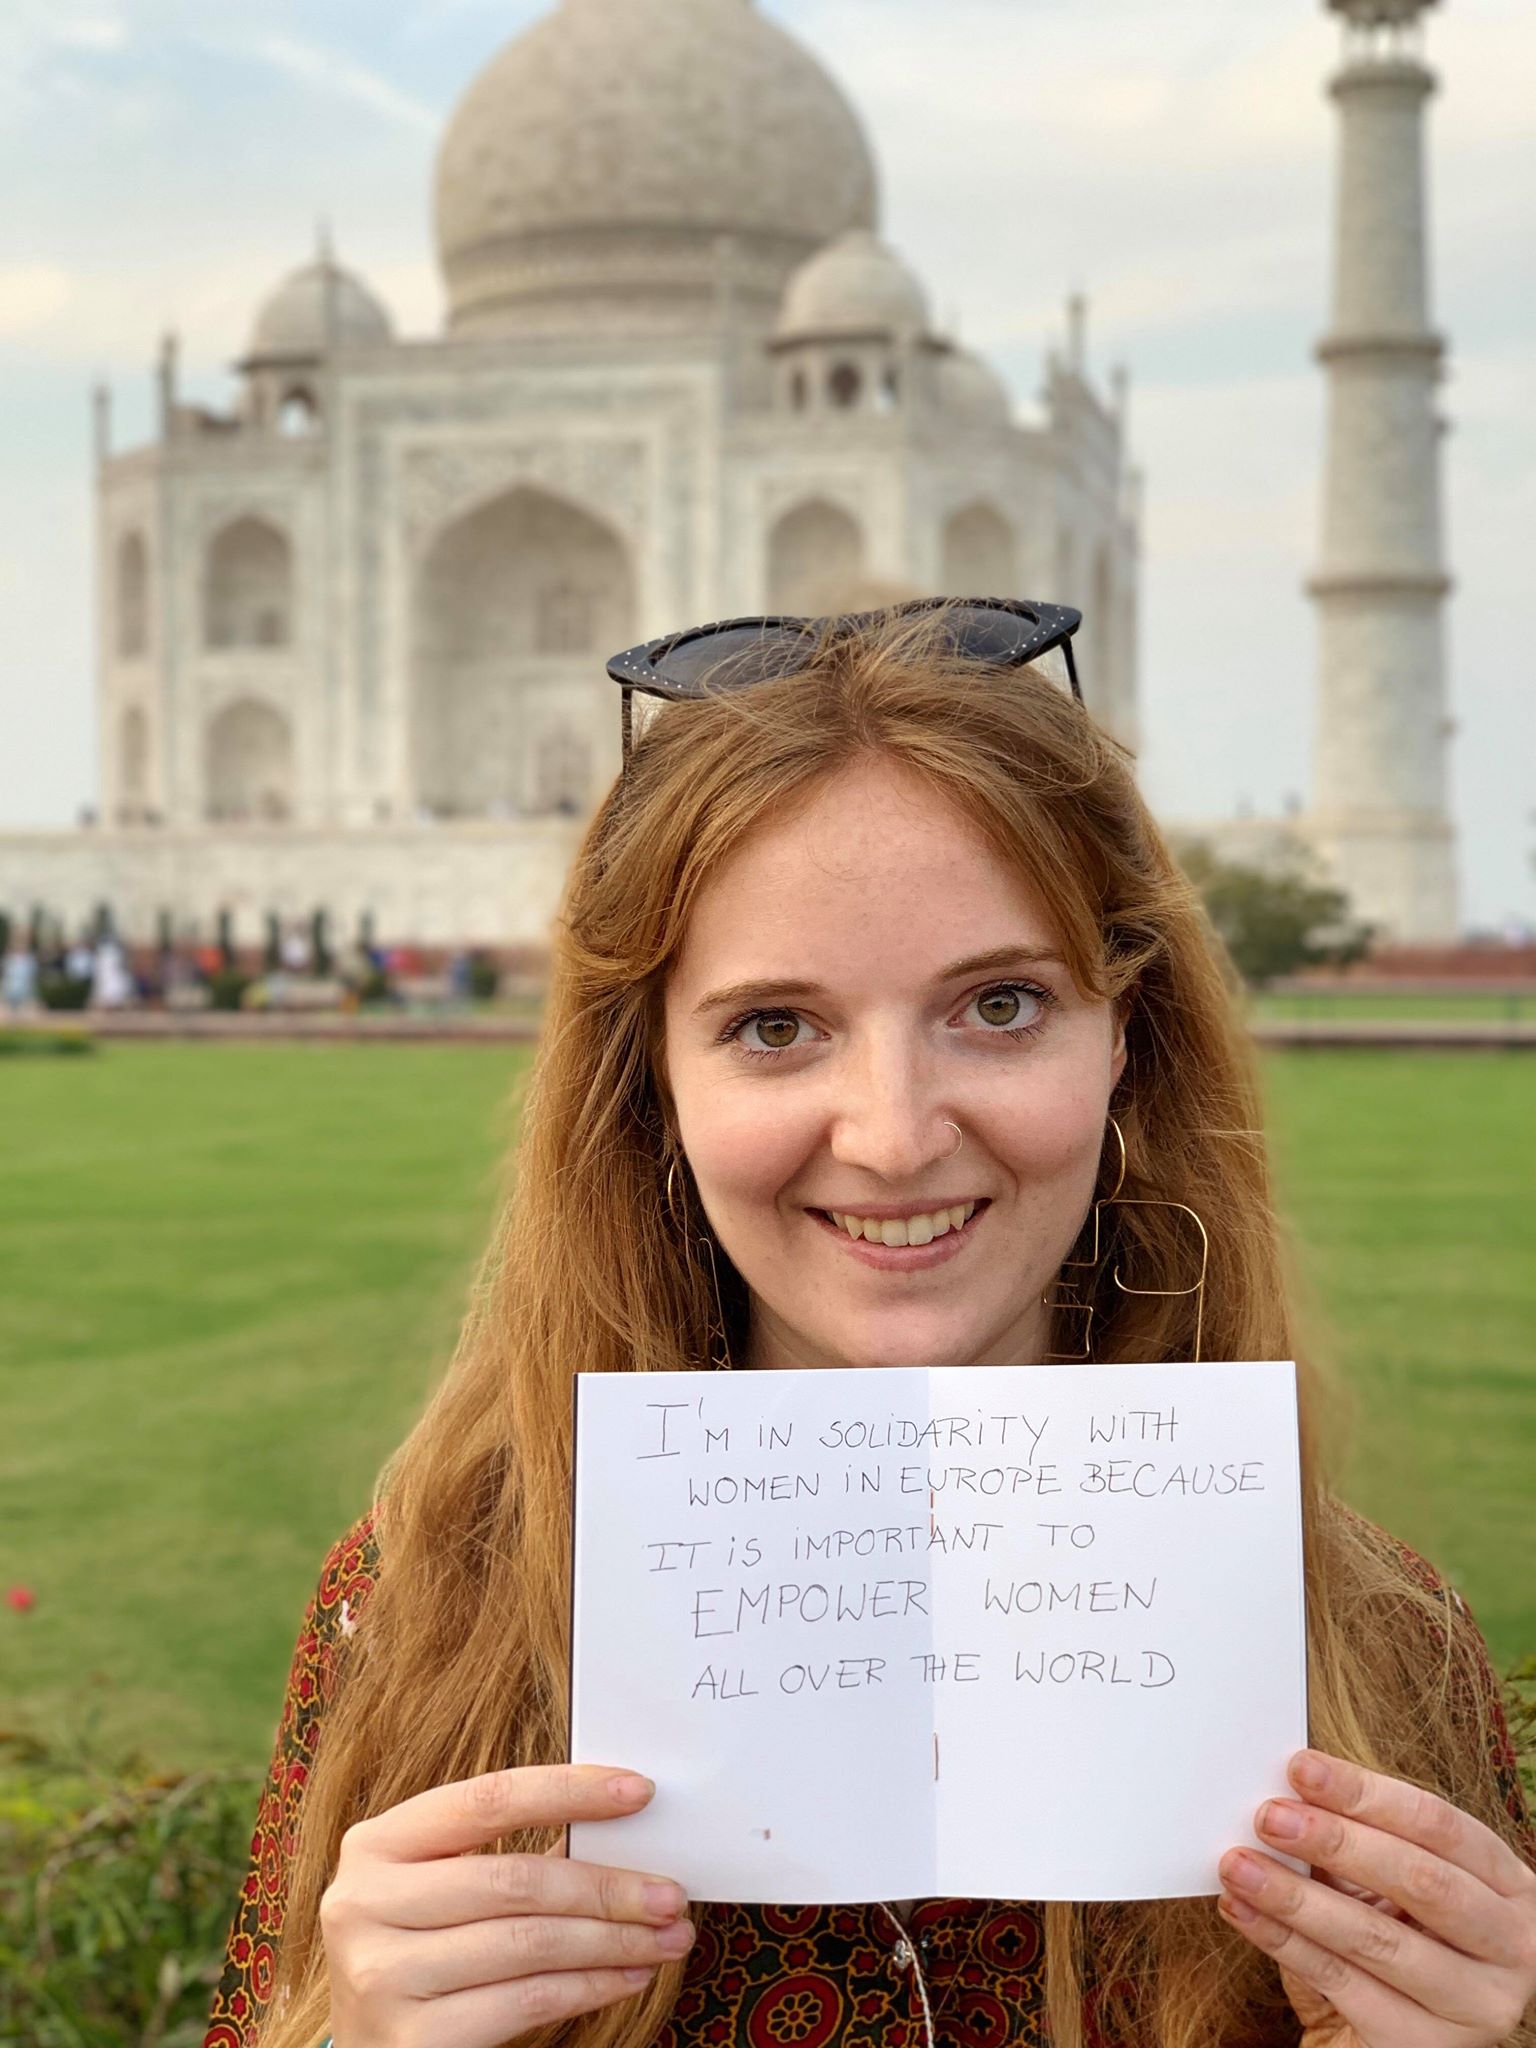 I'M IN SOLIDARITY WITH
WOMEN IN EUROPE BECAUSE
IT IS IMPORTANT TO
EMPOWER WOMEN
ALL OVER THE WORLD